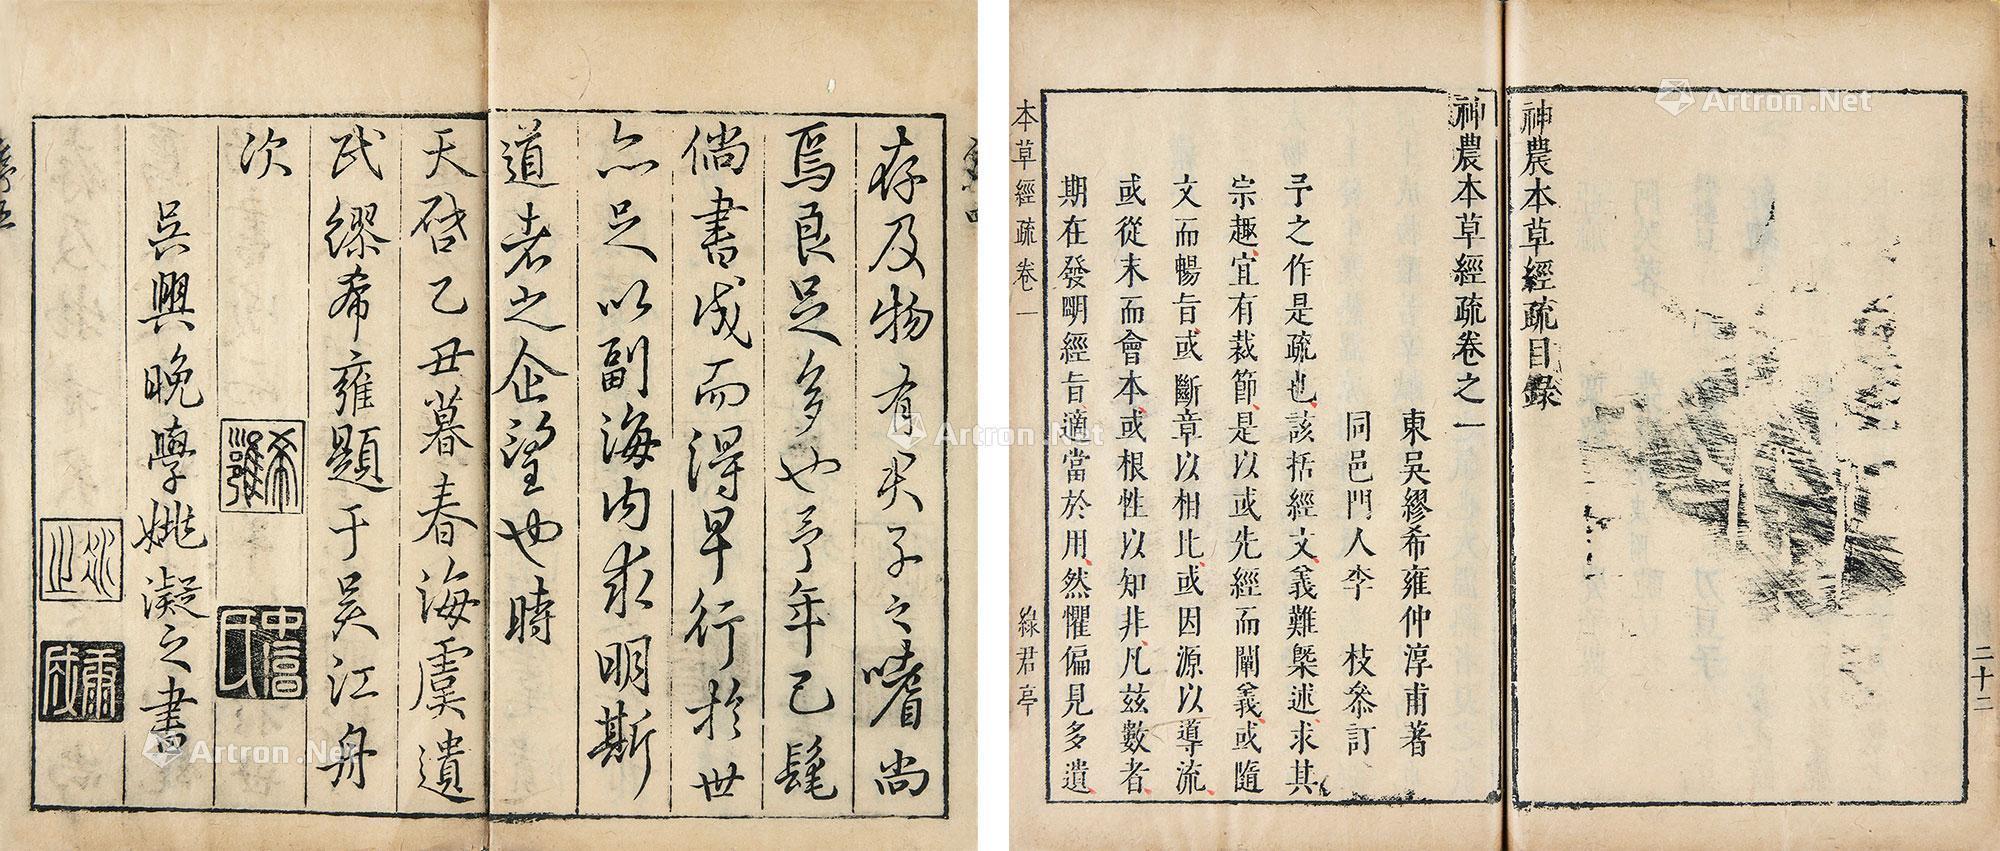 存及物有犬子之嗜尚
焉良足多也予年已髦
倘書成而得早行於世
亦足以副海内求明斯
道者之企望也時
天啓乙丑暮春海虞遺
民繆希雍題于吴江舟
次
吳興晚學姚凝之書
希雍
神農本草經疏目錄
二十二
神農本草經疏卷之一
東吳繆希雍仲淳甫著
同邑門人李枝參訂
予之作是疏也該括經文義難槩述求其
宗趣宜有裁節是以或先經而闡義或隨
文而暢旨或斷章以相比或因源以導流
或從末而會本或根性以知非凡茲數者
期在發明經旨適當於用然懼偏見多遺
本草經疏卷一
綠君亭
Artron.Net
Artron.Net
Artron.Net
Artron.Net